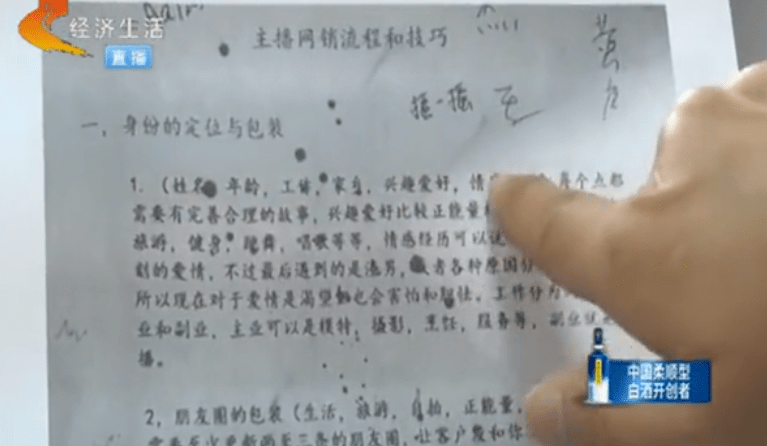 经济生活
直播
主播网销流程和技巧
摇一摇
一、身份的定位与包装
1.（姓名，年龄，工作，家乡，兴趣爱好，情 每个点都
需要有完善合理的故事，兴趣爱好比较正能量
旅游，健身，跳舞，唱歌等等，情感经历可以说
刻的爱情，不过最后遇到的是渣男，或者各种原因分
所以现在对于爱情是渴望 也会害怕和胆怯。工作分为
业和副业，主业可以是模特，摄影，烹饪，服务等，副业就是
播。
2，朋友圈的包装（生活，旅游，自拍，正能量，
需要至少更新两至三条的朋友圈，让客户觉和你
中国柔顺型
白酒开创者